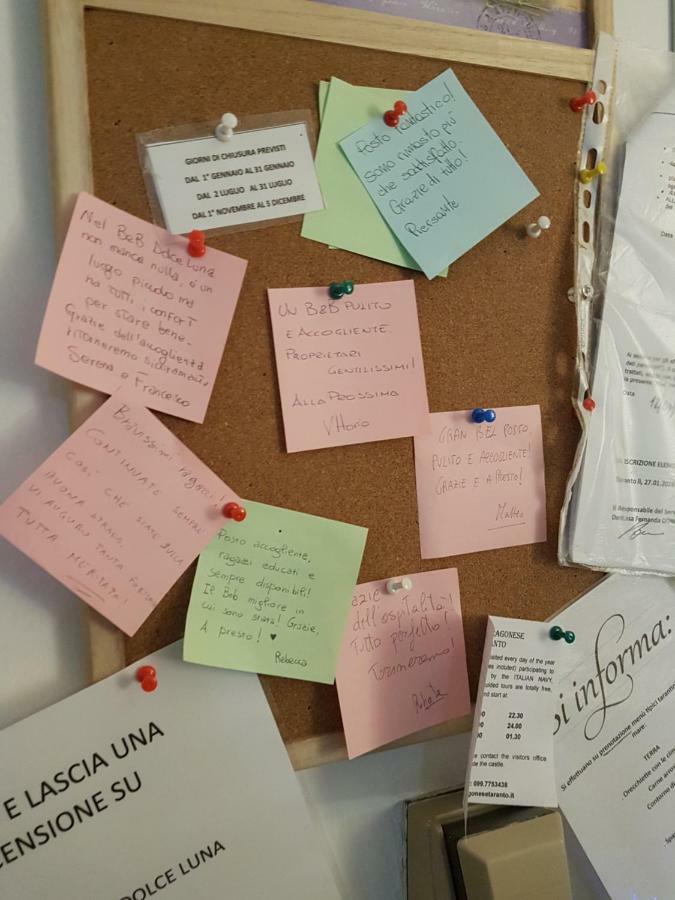 GIORNI DI CHIUSURA PREVISTI
DAL 1° GENNAIO AL 31 GENNAIO
DAL 2 LUGLIO AL 31 LUGLIO
DAL 1° NOVEMBRE AL 5 DICEMBRE
Posto fantastico!
Sono rimasto più
che soddisfatto.
Grazie di tutto!
Piersante
Nel B&B Dolce Luna
non manca nulla, è un
luogo piccolo ma
ha tutti i confort
per stare bene.
Grazie dell'accoglienza
ritorneremo sicuramente
Serena e Francesco
UN B&B PULITO
E ACCOGLIENTE.
PROPRIETARI
GENTILISSIMI!
ALLA PROSSIMA
Vittorio
GRAN BEL POSTO
PULITO E ACCOGLIENTE!
GRAZIE E A PRESTO!
Matteo
Bravissimi ragazzi!
CONTINUATE SEMPRE
COSÌ CHE SIATE SULLA
BUONA STRADA.
VI AUGURO TANTA FORTUNA
TUTTA MERITATA!
Posto accogliente,
ragazzi educati e
sempre disponibili!
Il B&b migliore in
cui sono stata! Grazie,
A presto! ♥
Rebecca
azie
dell'ospitalità!
Tutto perfetto!
Torneremo!
Roberta
E LASCIA UNA
CENSIONE SU
DOLCE LUNA
RAGONESE
ANTO
visited every day of the year
es included) participating to
by the ITALIAN NAVY,
uided tours are totally free,
nd start at:
22.30
24.00
01.30
e contact the visitors office
de the castle.
: 099.7753438
gonesetaranto.it
Si informa:
Si effettuano su prenotazione menù tipici tarantini
mare:
TERRA
Orecchiette con le
Carne
Contorno
Data
Data
ISCRIZIONE
Taranto lì, 27.01
Il Responsabile del
Dott.ssa Fernanda